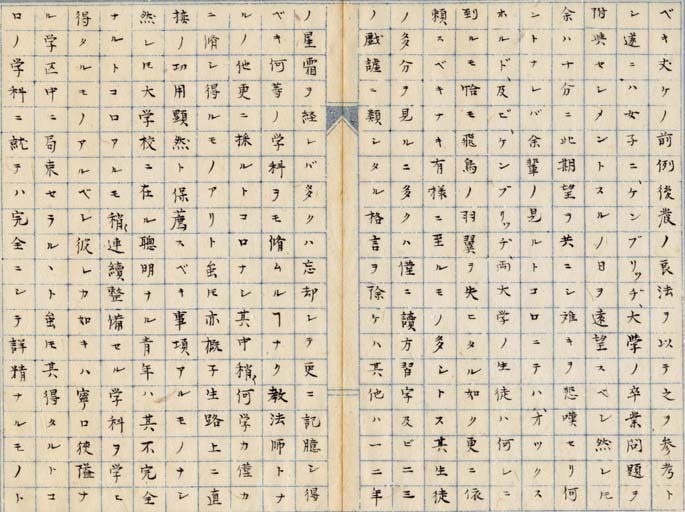 ベキ丈ケノ前例後農ノ良法ヲ以テ之ヲ参考ト
シ遂ニハ女子ニ、ケンブリッチ、大学ノ卒業問題ヲ
附與セシメントスルノ日ヲ遠望スベシ然レ𪜈
余ハ十分ニ此期望ヲ共ニシ难キヲ悲嘆セリ何
ントナレバ余輩ノ見ルトコロニテハ、オックス
ホルド、及ビ、ケンブリッヂ、両大学ノ生徒ハ何レニ
到ルモ恰モ飛鳥ノ羽翼ヲ失ヒタル如ク更ニ依
頼スベキナキ有様ニ至ルモノ多シトス其生徒
ノ多分ヲ見ルニ多クハ僅ニ讀方習字及ビ二三
ノ戯謔ニ類シタル格言ヲ除ケハ其他ハ一二年
ノ星霜ヲ経レバ多クハ忘却シテ更ニ記臆シ得
ベキ何等ノ学科ヲモ脩ムルヿナク教法師トナ
ルノ他更ニ採ルトコロナシ其中稍々何学カ僅カ
ニ脩シ得ルモノアリト虽𪜈亦概子生路上ニ直
接ノ功用顕然ト保薦スベキ事項アルモノナシ
然レ𪜈大学校ニ在ル聰明ナル青年ハ其不完全
ナルトコロアルモ稍々連續整備セル学科ヲ学ヒ
得タルモノアルベシ彼レカ如キハ寧ロ狭隘ナ
ル学区中ニ局束セラルヽト虽𪜈其得タルトコ
ロノ学科ニ就テハ完全ニシテ詳精ナルモノト